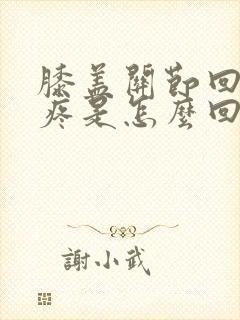 膝盖關節回
疼是怎麼回
謝小武